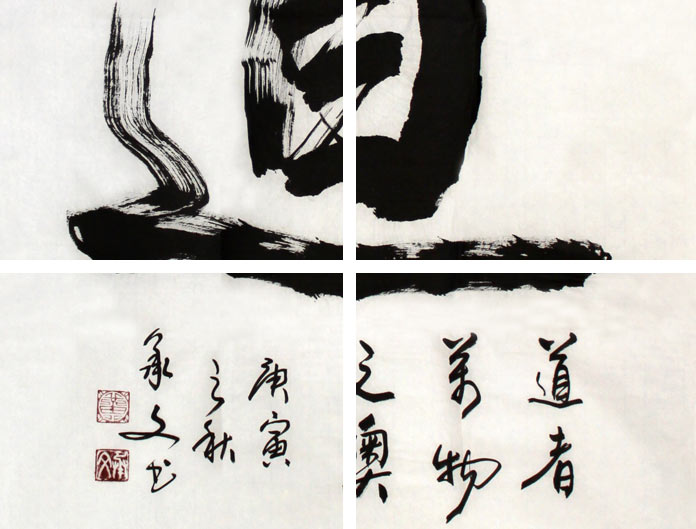 道
道者
萬物
之奧
庚寅
之秋
承文书